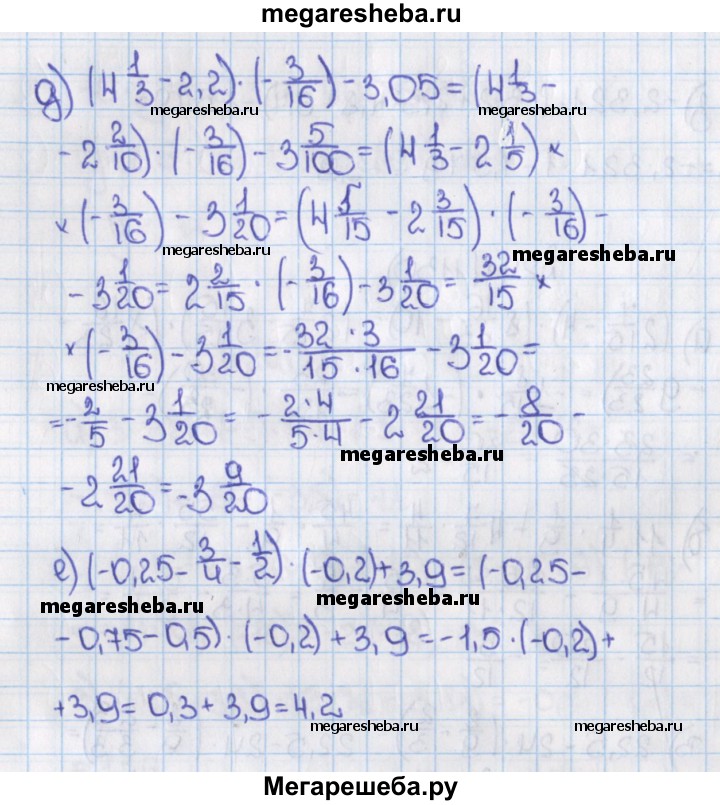 megaresheba.ru
д) (4 1/3 - 2,2) · (- 3/16) - 3,05 = (4 1/3 -
megaresheba.ru megaresheba.ru
- 2 2/10) · (- 3/16) - 3 5/100 = (4 1/3 - 2 1/5) ×
× (- 3/16) - 3 1/20 = (4 5/15 - 2 3/15) · (- 3/16) -
megaresheba.ru megaresheba.ru
- 3 1/20 = 2 2/15 · (- 3/16) - 3 1/20 = 32/15 ×
× (- 3/16) - 3 1/20 = - 32 · 3/15 · 16 - 3 1/20 =
megaresheba.ru
= - 2/5 - 3 1/20 = - 2 · 4/5 · 4 - 2 21/20 = - 8/20 -
megaresheba.ru
- 2 21/20 = - 3 9/20
е) (-0,25 - 3/4 - 1/2) · (-0,2) + 3,9 = (-0,25 -
megaresheba.ru megaresheba.ru
- 0,75 - 0,5) · (-0,2) + 3,9 = -1,5 · (-0,2) +
+ 3,9 = 0,3 + 3,9 = 4,2
megaresheba.ru megaresheba.ru
Мегарешеба.ру